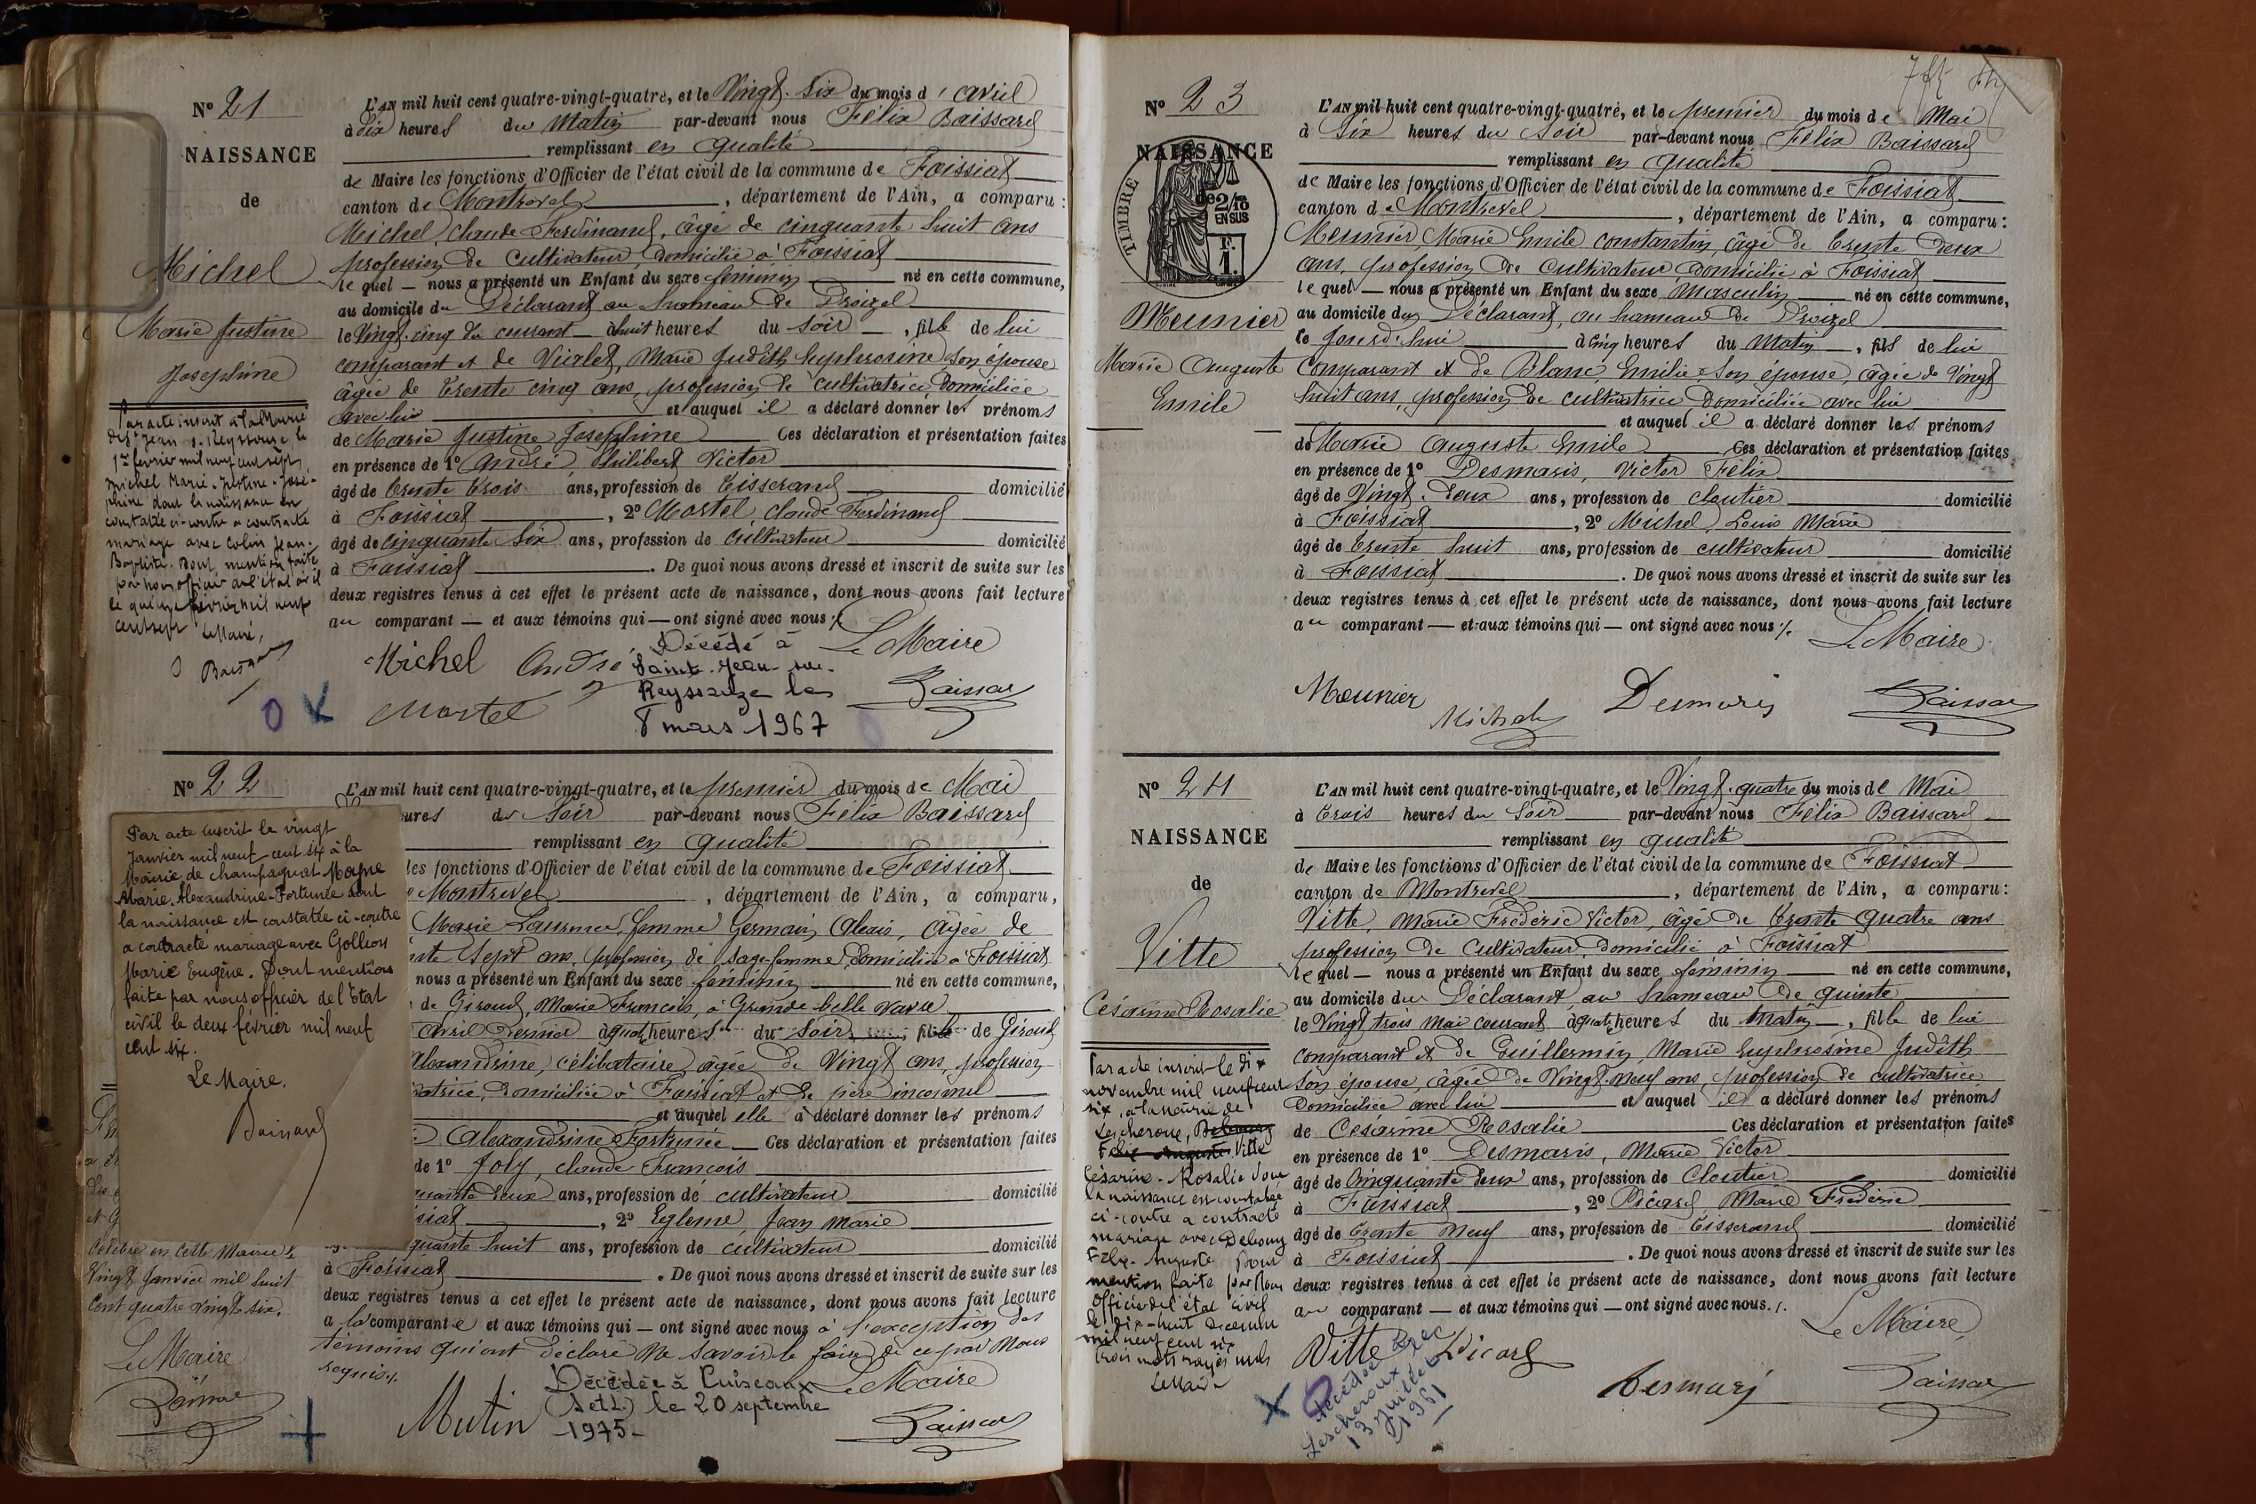 No 21
NAISSANCE
de
Michel
Marie Justine
Josephine
Par acte inscrit à la Mairie
de St Jean s. Reyssouze le
1er février mil neuf cent sept,
Michel Marie-Justine-José-
phine dont la naissance est
constatée ci-contre a contracté
mariage avec Colin Jean-
Baptiste. Dont mention faite
par nous officier de l'état civil
le quinze février mil neuf
cent sept Le Maire,
L'AN mil huit cent quatre-vingt-quatre, et le Vingt. Six du mois d'avril
à dix heures du Matin par-devant nous Félix Baissard
remplissant en qualité
de Maire les fonctions d'Officier de l'état civil de la commune de Foissiat
canton de Montrevel, département de l'Ain, a comparu :
Michel, Claude Ferdinand, âgé de cinquante huit ans
profession de Cultivateur, domicilié à Foissiat
le quel — nous a présenté un Enfant du sexe féminin né en cette commune,
au domicile du Déclarant au hameau de Proizel
le Vingt cinq du courant à huit heures du Soir, fille de lui
comparant et de Viollet, Marie Judith Euphrosine son épouse
âgée de trente cinq ans, profession de cultivatrice domiciliée
avec lui et auquel il a déclaré donner les prénoms
de Marie Justine Josephine Ces déclaration et présentation faites
en présence de 1o André Philibert Victor
âgé de trente trois ans, profession de Tisserand domicilié
à Foissiat, 2o Mortel, Claude Ferdinand
âgé de cinquante six ans, profession de cultivateur domicilié
à Foissiat. De quoi nous avons dressé et inscrit de suite sur les
deux registres tenus à cet effet le présent acte de naissance, dont nous avons fait lecture
au comparant — et aux témoins qui — ont signé avec nous
Le Maire
Michel André Baissard
Mortel
Décédé à
Saint-Jean-sur-
Reyssouze le
8 mars 1967
No 22
Par acte inscrit le vingt
Janvier mil neuf cent six à la
Mairie de Champagnat Mayne
Marie-Alexandrine-Fortunée dont
la naissance est constatée ci-contre
a contracté mariage avec Gollion
Marie Eugène. Dont mention
faite par nous officier de l'état
civil le deux février mil neuf
cent six.
Le Maire.
Baissard
célébré en cette Mairie le
Vingt Janvier mil huit
Cent quatre vingt six.
Le Maire
L'AN mil huit cent quatre-vingt-quatre, et le premier du mois de Mai
ures du Soir par-devant nous Félix Baissard
remplissant en qualité
les fonctions d'Officier de l'état civil de la commune de Foissiat
Montrevel, département de l'Ain, a comparu,
Marie Laurence, femme Germain Alexis, âgée de
Sept ans, profession de Sage-femme, domiciliée à Foissiat
nous a présenté un Enfant du sexe féminin né en cette commune,
de Giroud, Marie François, à Grande belle vavre
avril dernier à quatre heures du Soir, fille de Giroud
Alexandrine, célibataire, âgée de Vingt ans, profession
domiciliée à Foissiat et de père inconnu
et auquel elle a déclaré donner les prénoms
Alexandrine Fortunée — Ces déclaration et présentation faites
de 1o Joly, Claude François
deux ans, profession de cultivateur domicilié
siat, 2o Egleme, Jean Marie
quante huit ans, profession de cultivateur domicilié
à Foissiat. De quoi nous avons dressé et inscrit de suite sur les
deux registres tenus à cet effet le présent acte de naissance, dont nous avons fait lecture
a la comparante et aux témoins qui — ont signé avec nous à l'exception des
témoins qui ont déclaré ne savoir le faire de ce par Nous
requis.
Le Maire
Mutin Baissard
Décédée à Cuiseaux
(S et L.) le 20 septembre
1975-
No 23
NAISSANCE
de
TIMBRE
2/10
EN SUS
F.
1.
Meunier
Marie Auguste
Emile
L'AN mil huit cent quatre-vingt-quatre, et le premier du mois de Mai
à Six heures du Soir par-devant nous Félix Baissard
remplissant en qualité
de Maire les fonctions d'Officier de l'état civil de la commune de Foissiat
canton de Montrevel, département de l'Ain, a comparu :
Meunier, Marie Emile Constantin, âgé de trente deux
ans, profession de Cultivateur domicilié à Foissiat
le quel — nous a présenté un Enfant du sexe Masculin né en cette commune,
au domicile du Déclarant, au hameau de Proizel
le Jourd'hui à cinq heures du Matin, fils de lui
Comparant et de Blanc, Emilie, Son épouse, âgée de Vingt
huit ans, profession de cultivatrice domiciliée avec lui
et auquel il a déclaré donner les prénoms
de Marie Auguste Emile Ces déclaration et présentation faites
en présence de 1o Desmaris, Victor Félix
âgé de Vingt-deux ans, profession de cloutier domicilié
à Foissiat, 2o Michel, Louis Marie
âgé de trente huit ans, profession de cultivateur domicilié
à Foissiat. De quoi nous avons dressé et inscrit de suite sur les
deux registres tenus à cet effet le présent acte de naissance, dont nous avons fait lecture
au comparant — et aux témoins qui — ont signé avec nous
Le Maire
Meunier Michel Desmaris Baissard
No 24
NAISSANCE
de
Vitte
Césarine Rosalie
Par acte inscrit le dix
novembre mil neuf cent
six, à la mairie de
Lescheroux, Vitte
Césarine-Rosalie dont
la naissance est constatée
ci-contre a contracté
mariage avec Debourg
Félix-Auguste Dont
mention faite par Nous
Officier de l'état civil
le dix-huit décembre
mil neuf cent six
trois mots rayés nuls
Le Maire
L'AN mil huit cent quatre-vingt-quatre, et le Vingt-quatre du mois de Mai
à trois heures du Soir par-devant nous Félix Baissard
remplissant en qualité
de Maire les fonctions d'Officier de l'état civil de la commune de Foissiat
canton de Montrevel, département de l'Ain, a comparu:
Vitte, Marie Frédéric Victor, âgé de trente quatre ans
profession de Cultivateur, domicilié à Foissiat
le quel — nous a présenté un Enfant du sexe féminin né en cette commune,
au domicile du Déclarant au hameau de quinte
le Vingt trois Mai courant à quatre heures du Matin, fille de lui
comparant et de Guillermin, Marie Euphrosine Judith
Son épouse, âgée de Vingt-neuf ans, profession de cultivatrice
Domiciliée avec lui et auquel il a déclaré donner les prénoms
de Césarine Rosalie Ces déclaration et présentation faites
en présence de 1o Desmaris, Marie Victor
âgé de Cinquante deux ans, profession de Cloutier domicilié
à Foissiat, 2o Picard, Marie Frédéric
âgé de trente Neuf ans, profession de Tisserand domicilié
à Foissiat. De quoi nous avons dressé et inscrit de suite sur les
deux registres tenus à cet effet le présent acte de naissance, dont nous avons fait lecture
au comparant — et aux témoins qui — ont signé avec nous.
Le Maire
Vitte Picard Desmaris Baissard
Décédée à
Lescheroux
13 juillet
1961